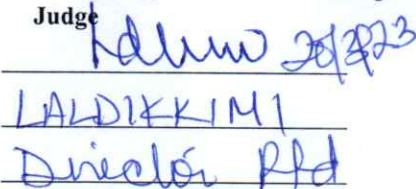 Judge
28/3/23
LALDIKKIMI
Director Rtd